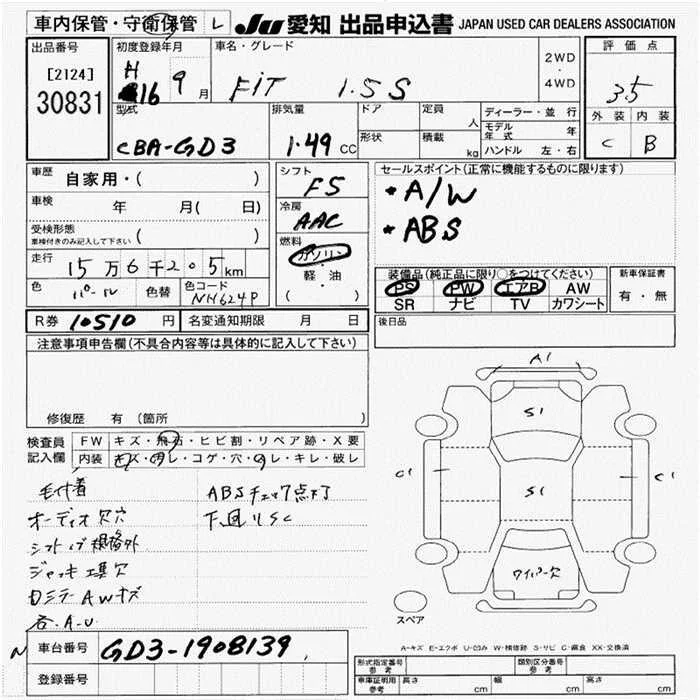 車内保管・守衛保管 レ JU 愛知 出品申込書 JAPAN USED CAR DEALERS ASSOCIATION
出品番号 初度登録年月 車名・グレード 2WD ・ 4WD 評価点
[2124] H16 9月 FiT 1.5S 3.5
30831
型式 排気量 ドア 定員 人 ディーラー・並行 外装 内装
CBA-GD3 1.49 CC 形状 積載 kg モデル年式 年 C B
ハンドル 左・右
車歴 自家用・( ) シフト F5 セールスポイント(正常に機能するものに限ります)
車検 年 月( 日) 冷房 AAC ・A/W
受検形態 ( ) ・ABS
車検付きのみ記入して下さい
燃料 ガソリン・軽・油 ( )
走行 15万6千205km 装備品(純正品に限り○をつけてください) 新車保証書
色 パール 色替 色コード NH624P PS PW エアB AW 有・無
SR ナビ TV カワシート
R券 10510円 名変通知期限 月 日 後日品
注意事項申告欄(不具合内容等は具体的に記入して下さい)
修復歴 有 (箇所 )
A1
S1
C1 S1 C1
ワイパー欠
スペア
検査員記入欄 FW キズ・飛石・ヒビ割・リペア跡・X要
内装 キズ・汚レ・コゲ・穴・スレ・キレ・破レ
毛付着 ABSチェック点灯
オーディオ欠穴 下回りSC
シフトノブ規格外
ジャッキ工具欠
Dミラー AWキズ
各A.U
A-キズ E-エクボ U-凹み W-補修跡 S-サビ C-腐食 XX-交換済
車台番号 GD3-1908139
登録番号
形式指定番号 参考 類別区分番号 参考
車庫証明用 参考 長さ cm 幅 cm 高さ cm